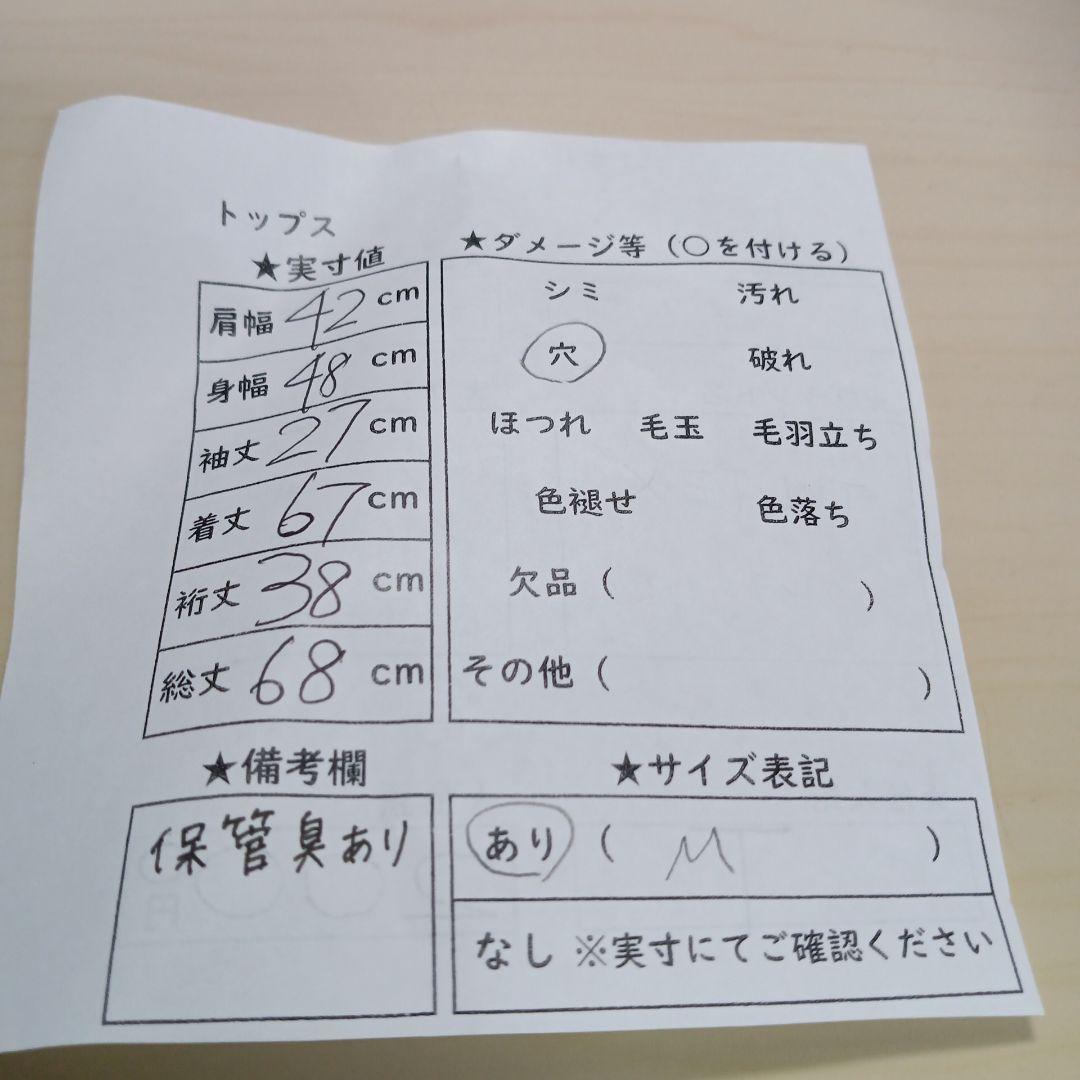 トップス
★実寸値
肩幅 42 cm
身幅 48 cm
袖丈 27 cm
着丈 67 cm
裄丈 38 cm
総丈 68 cm
★ダメージ等（○を付ける）
シミ 汚れ
穴 破れ
ほつれ 毛玉 毛羽立ち
色褪せ 色落ち
欠品（ ）
その他（ ）
★備考欄
保管臭あり
★サイズ表記
あり（ M ）
なし ※実寸にてご確認ください